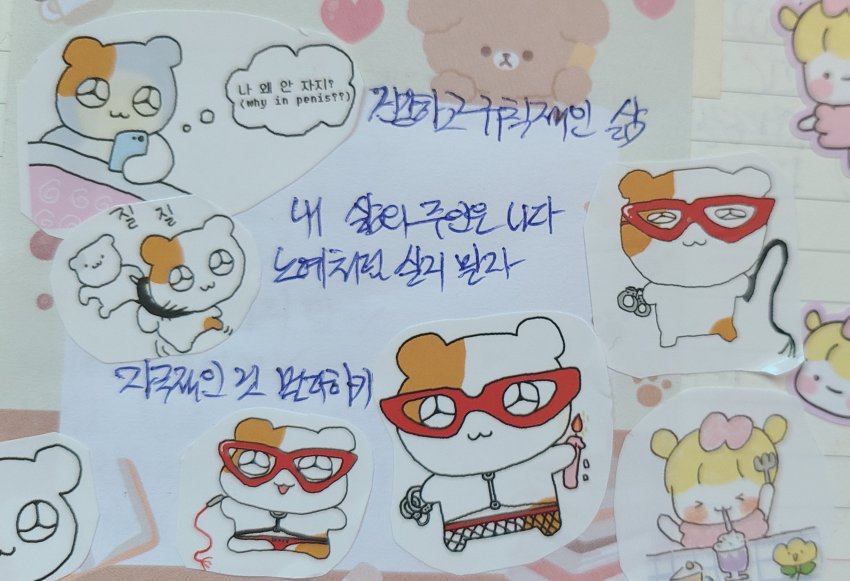 나 왜 안 자지?
(why in penis??)
건강하고 규칙적인 삶
질 질
내 삶의 주인은 나다
노예처럼 살지 말자
자극적인 건 멀리하기